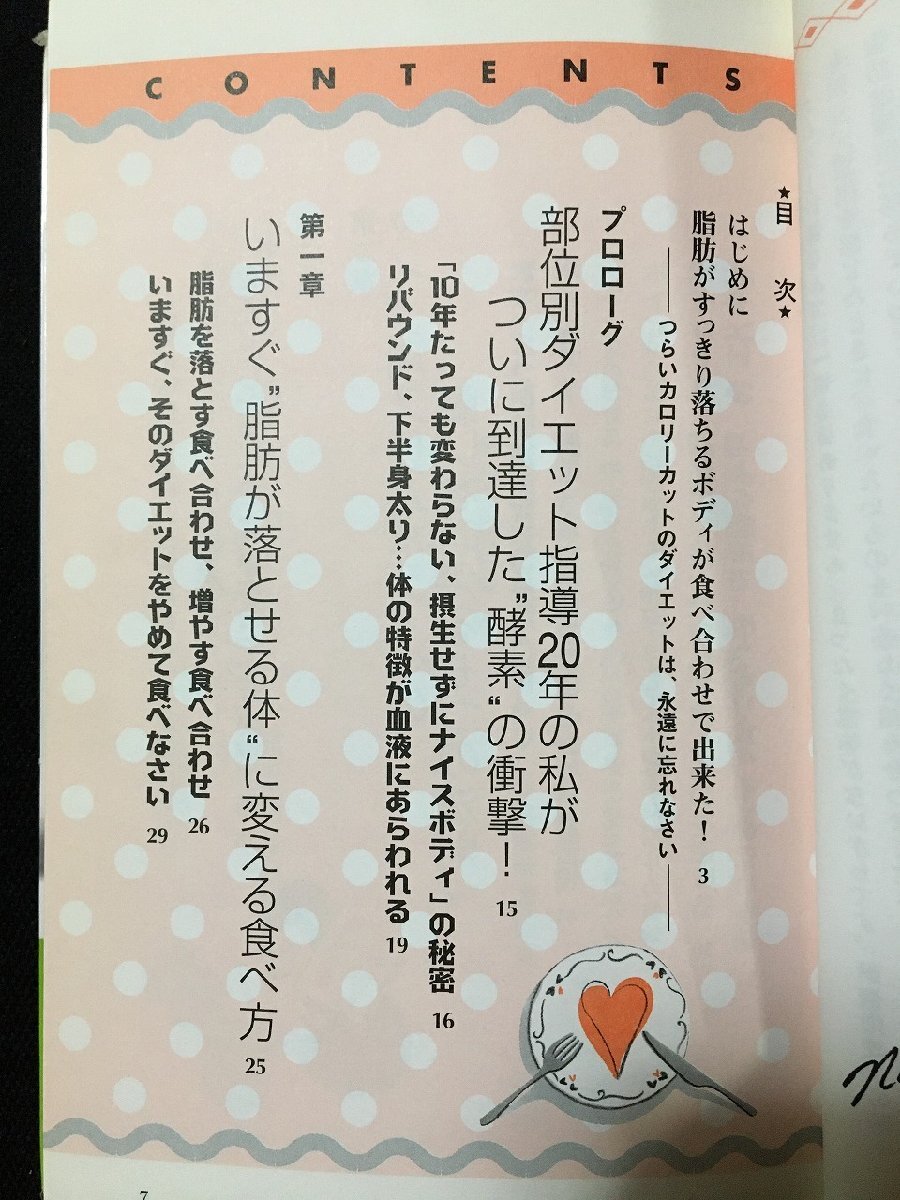 CONTENTS
★目 次★
はじめに
脂肪がすっきり落ちるボディが食べ合わせで出来た！ 3
――つらいカロリーカットのダイエットは、永遠に忘れなさい――
プロローグ
部位別ダイエット指導20年の私が
ついに到達した〝酵素〟の衝撃！ 15
「10年たっても変わらない、摂生せずにナイスボディ」の秘密 16
リバウンド、下半身太り…体の特徴が血液にあらわれる 19
第一章
いますぐ〝脂肪が落とせる体〟に変える食べ方 25
脂肪を落とす食べ合わせ、増やす食べ合わせ 26
いますぐ、そのダイエットをやめて食べなさい 29
7